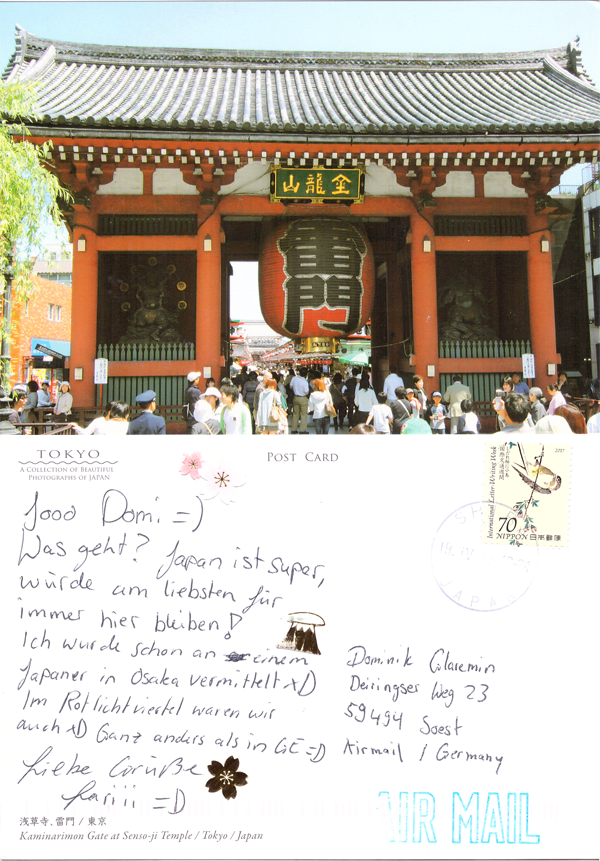 金龍山
雷門
TOKYO
A COLLECTION OF BEAUTIFUL
PHOTOGRAPHS OF JAPAN
POST CARD
2007
International Letter-Writing Week
国際文通週間
70
NIPPON 日本郵便
JAPAN
Jooo Domi =)
Was geht? Japan ist super,
würde am liebsten für
immer hier bleiben!
Ich wurde schon an einem
Japaner in Osaka vermittelt xD
Im Rotlichtviertel waren wir
auch xD Ganz anders als in GE =D
Liebe Grüße
=D
Dominik
Weg 23
59494 Soest
Airmail / Germany
AIR MAIL
浅草寺、雷門 / 東京
Kaminarimon Gate at Senso-ji Temple / Tokyo / Japan